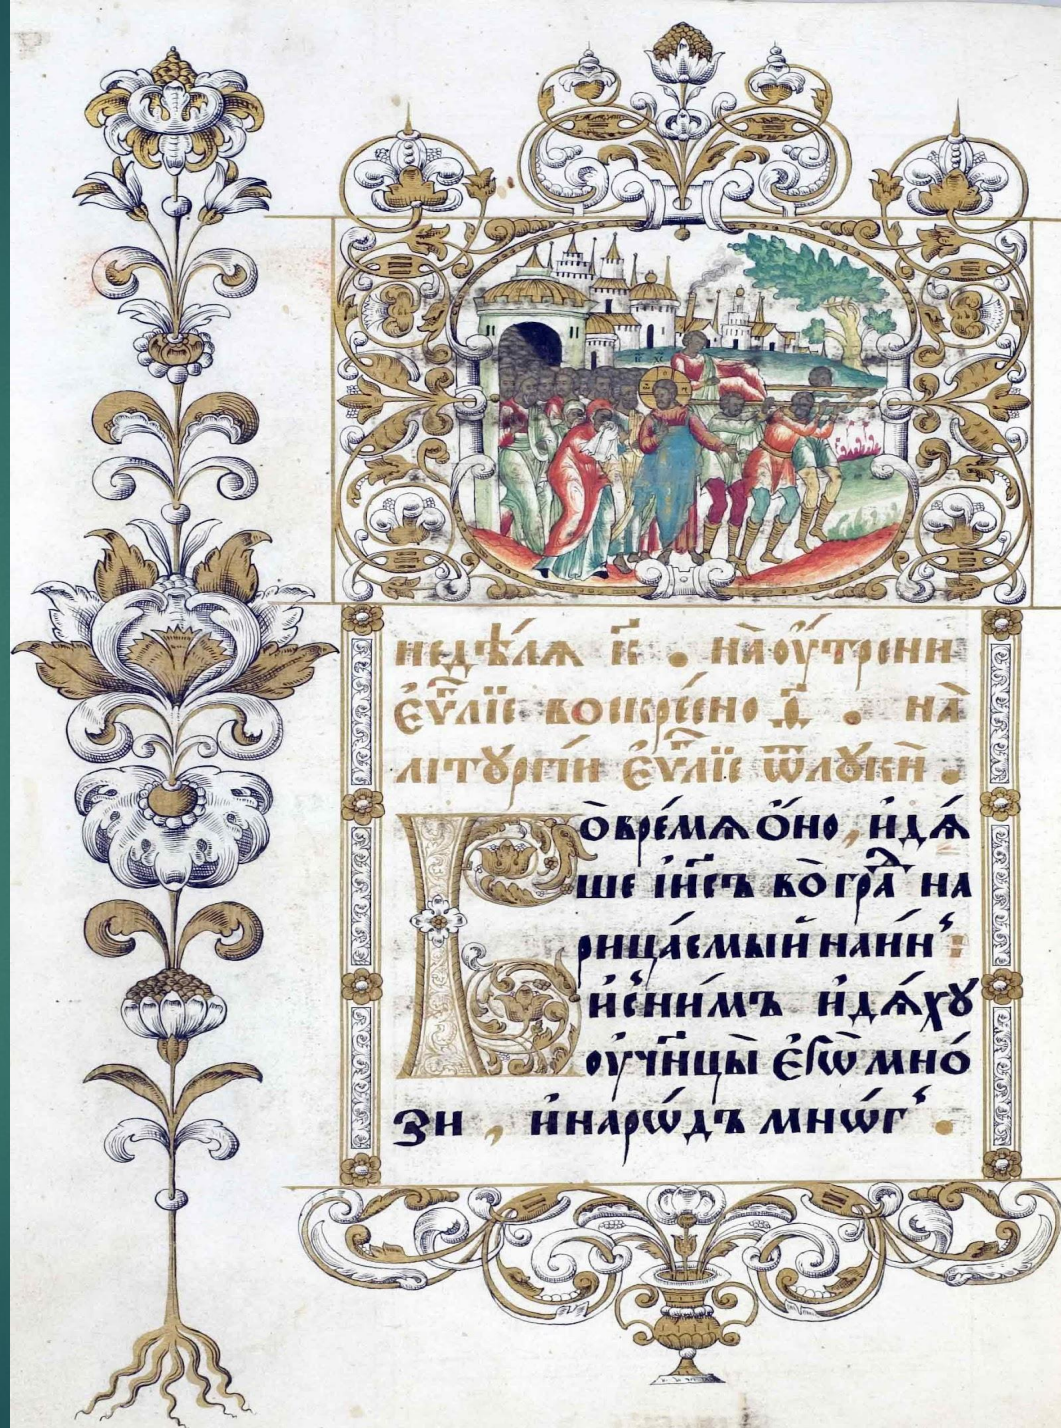 недѣ́лѧ к҃ . на̀ оу҆́трени
є҆ѵⷢ҇лїе воскре́сно д҃ . на̀
літꙋргі́и є҆ѵⷢ҇лїе ѿ лꙋкѝ .
Во̀ вре́мѧ ѻ҆́но , и҆дѧ́
ше і҆и҃съ во̀ гра́ⷣ на
рица́емыи наи́нъ
и҆ с ни́мъ и҆дѧ́хꙋ
оу҆чн҃цы̀ є҆гѡ̀ мно́
зи , и҆ наро́дъ мнѡ́гъ .